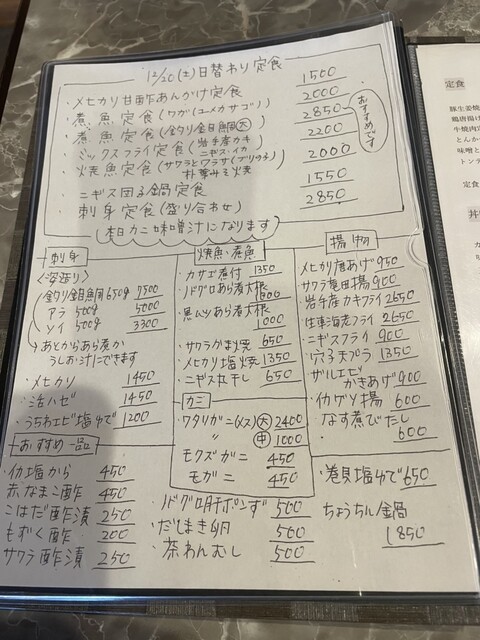 12/20(土)日替わり定食
・メヒカリ甘酢あんかけ定食 1500
・煮魚定食(ワガ(ユメカサゴ)) 2000
・煮魚定食(釣り金目鯛(大)) 2850
おすすめです
・ミックスフライ定食(岩手産カキ ニギス・イカ) 2200
・焼魚定食(サワラとワラサ(ブリの子) 朴葉みそ焼 2000
・ニギス団子鍋定食 1550
・刺身定食(盛り合わせ) 2850
(本日カニ味噌汁になります)
刺身
〈姿造り〉
・釣り金目鯛650g 7500
アラ 500g 5000
ソイ 500g 3300
→あとからあら煮か
うしお汁にできます
・メヒカリ 1450
・活ハゼ 1450
・うちわエビ塩ゆで 1200
おすすめ一品
・イカ塩から 450
・赤なまこ酢 450
・こはだ酢漬 250
・もずく酢 200
・サワラ酢漬 250
焼魚・煮魚
・カサゴ煮付 1350
・ノドグロあら煮大根 1000
・黒ムツあら煮大根 1000
・サワラかま焼 650
・メヒカリ塩焼 1350
・ニギス丸干し 650
カニ
・ワタリガニ(メス)(大) 2400
〃 (中) 1000
・モクズガニ 450
・モガニ 450
・ノドグロ肝ポンず 500
・だしまき卵 500
・茶わんむし 500
揚物
・メヒカリ唐あげ 950
・サワラ竜田揚 900
・岩手産カキフライ 2650
・生車海老フライ 2650
・ニギスフライ 900
・穴子天プラ 1350
・ザルエビ
かきあげ 900
・イカゲソ揚 600
・なす煮びたし
600
・巻貝塩ゆで 650
ちょうちん鍋
1850
定食
豚生姜焼
鶏唐揚げ
牛焼肉定
とんか
味噌と
トンテ
定食